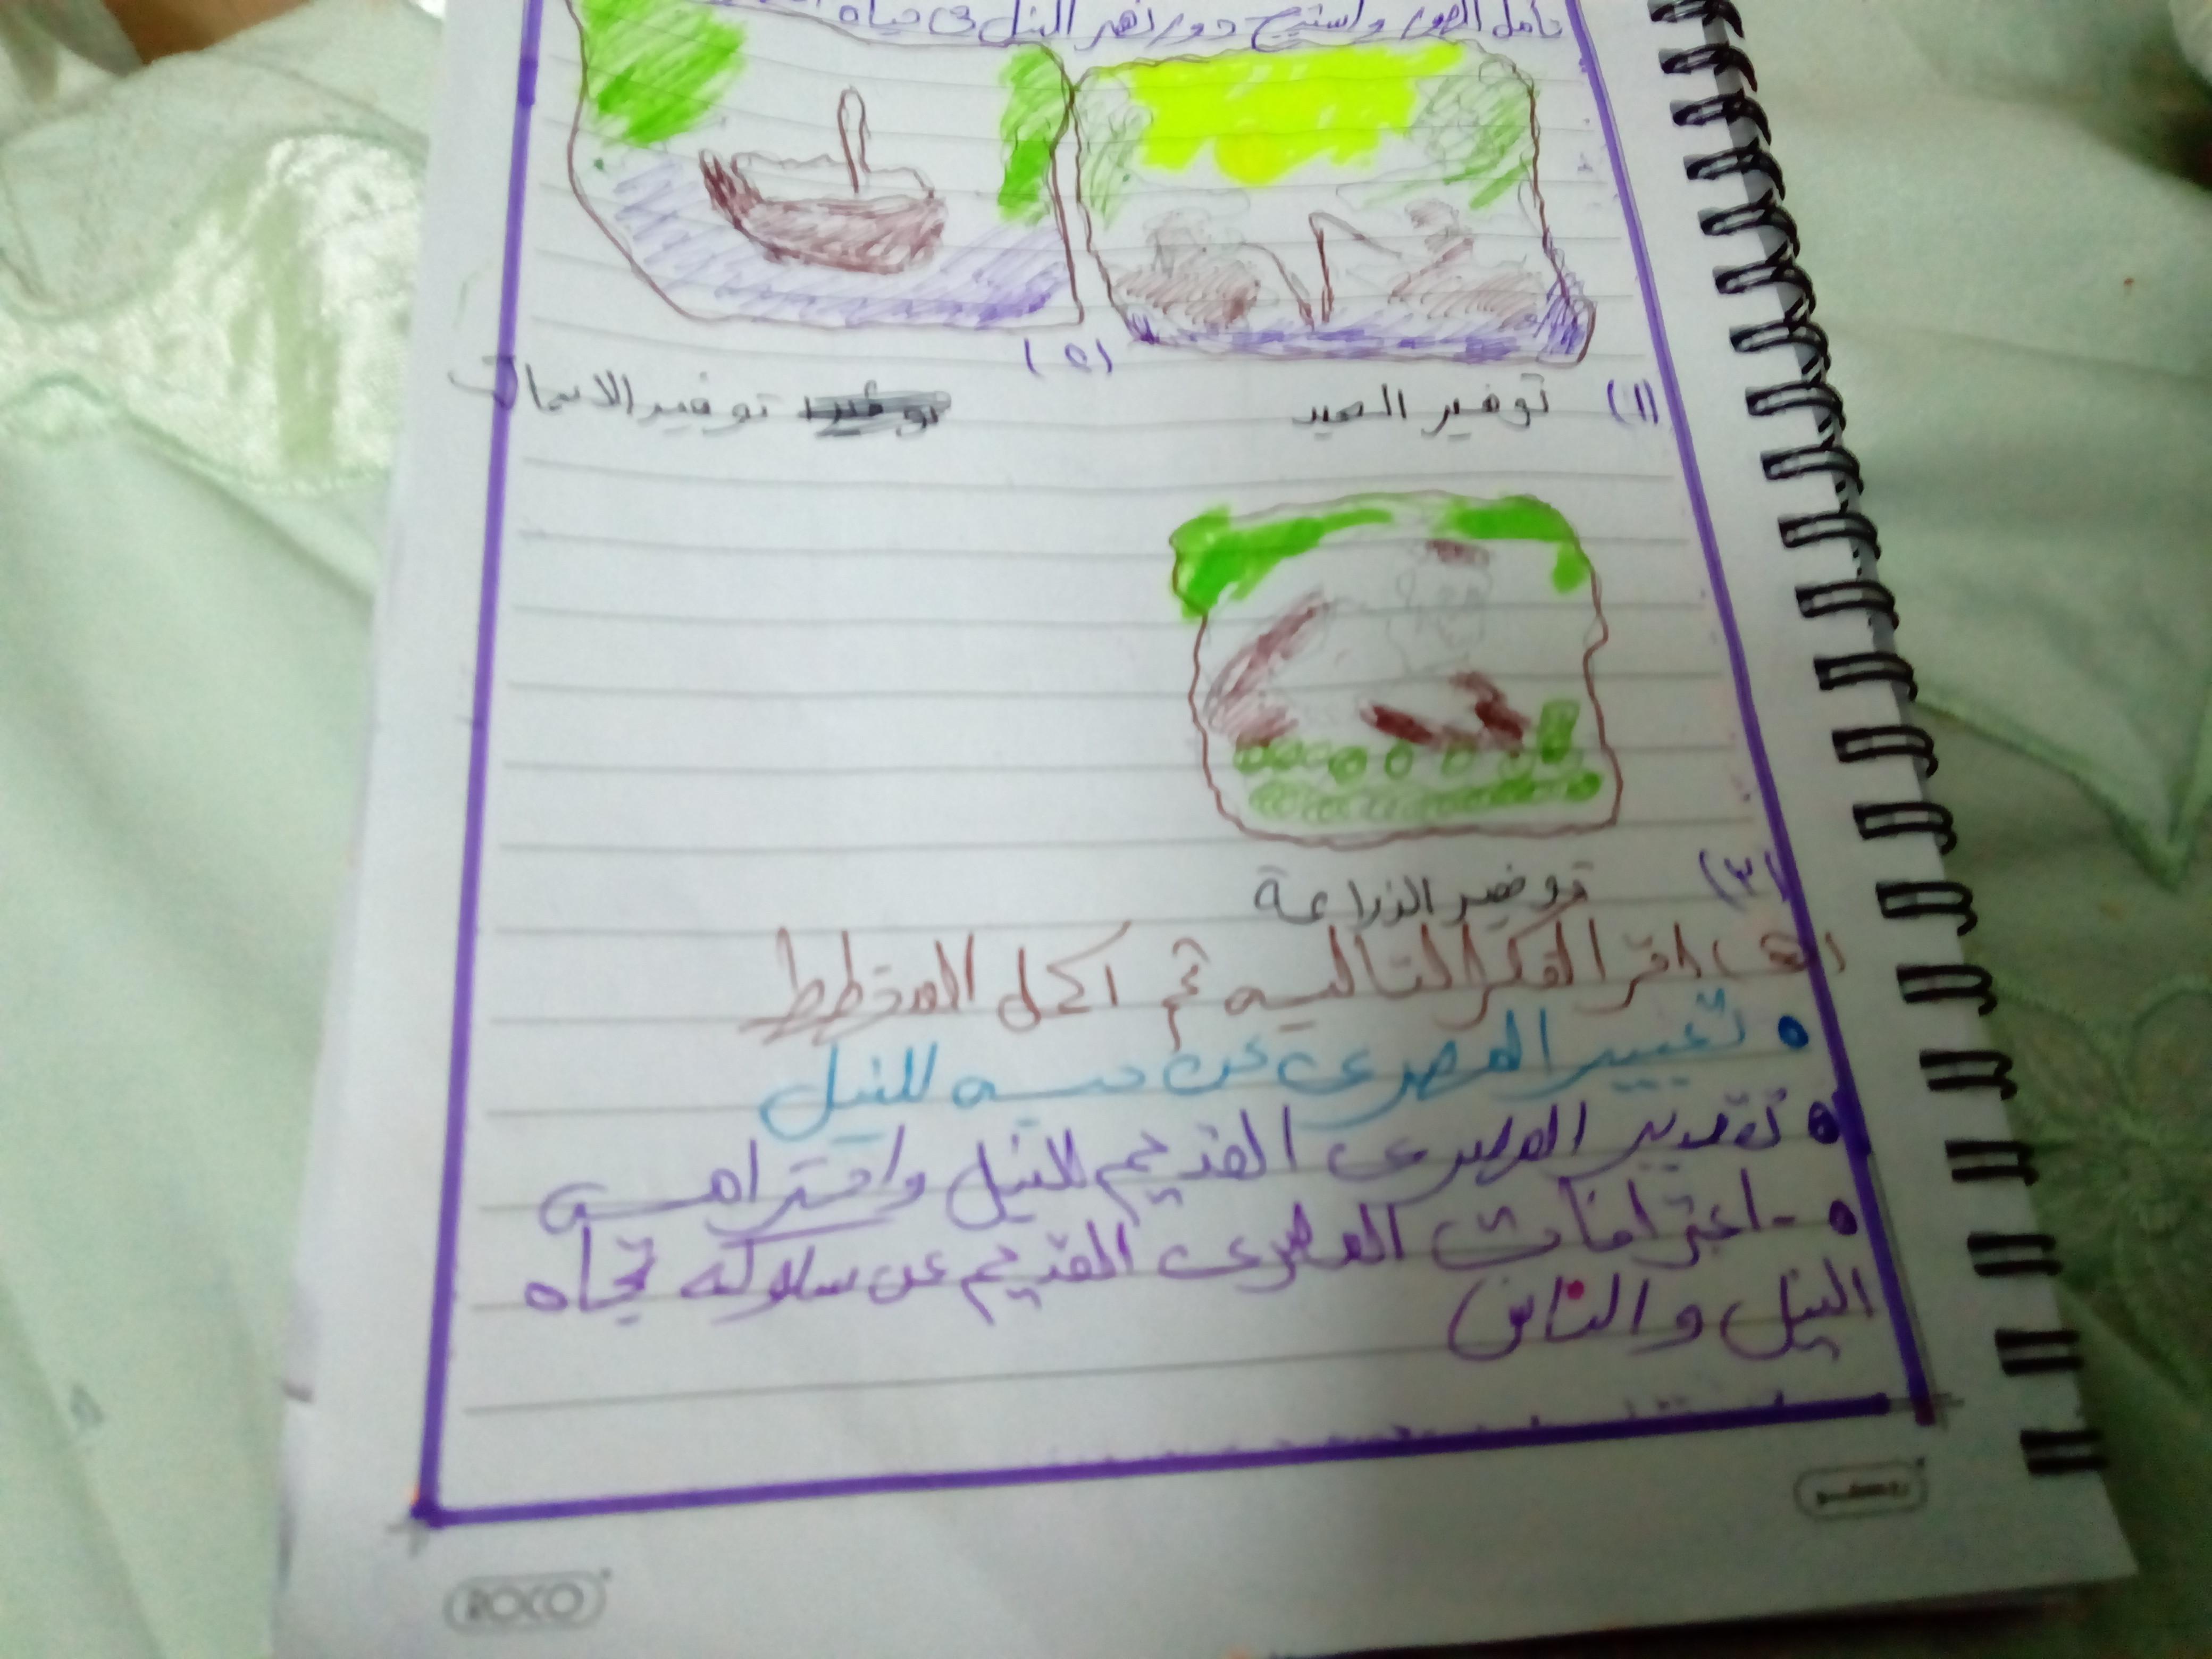 تامل الصور واستنتج دور نهر النيل فى حياة
(١) توفير الصيد
(٢) توفير توفير الاسماك
(٣)
توفير الزراعة
(هـ) اقرا الفكر التاليه ثم اكمل المخطط
• تعبير المصرى عن حبه للنيل
• تقدير المصرى القديم للنيل واحترامه
• - اعترافات المصرى القديم عن سلوكه تجاه
النيل والناس
ROCO